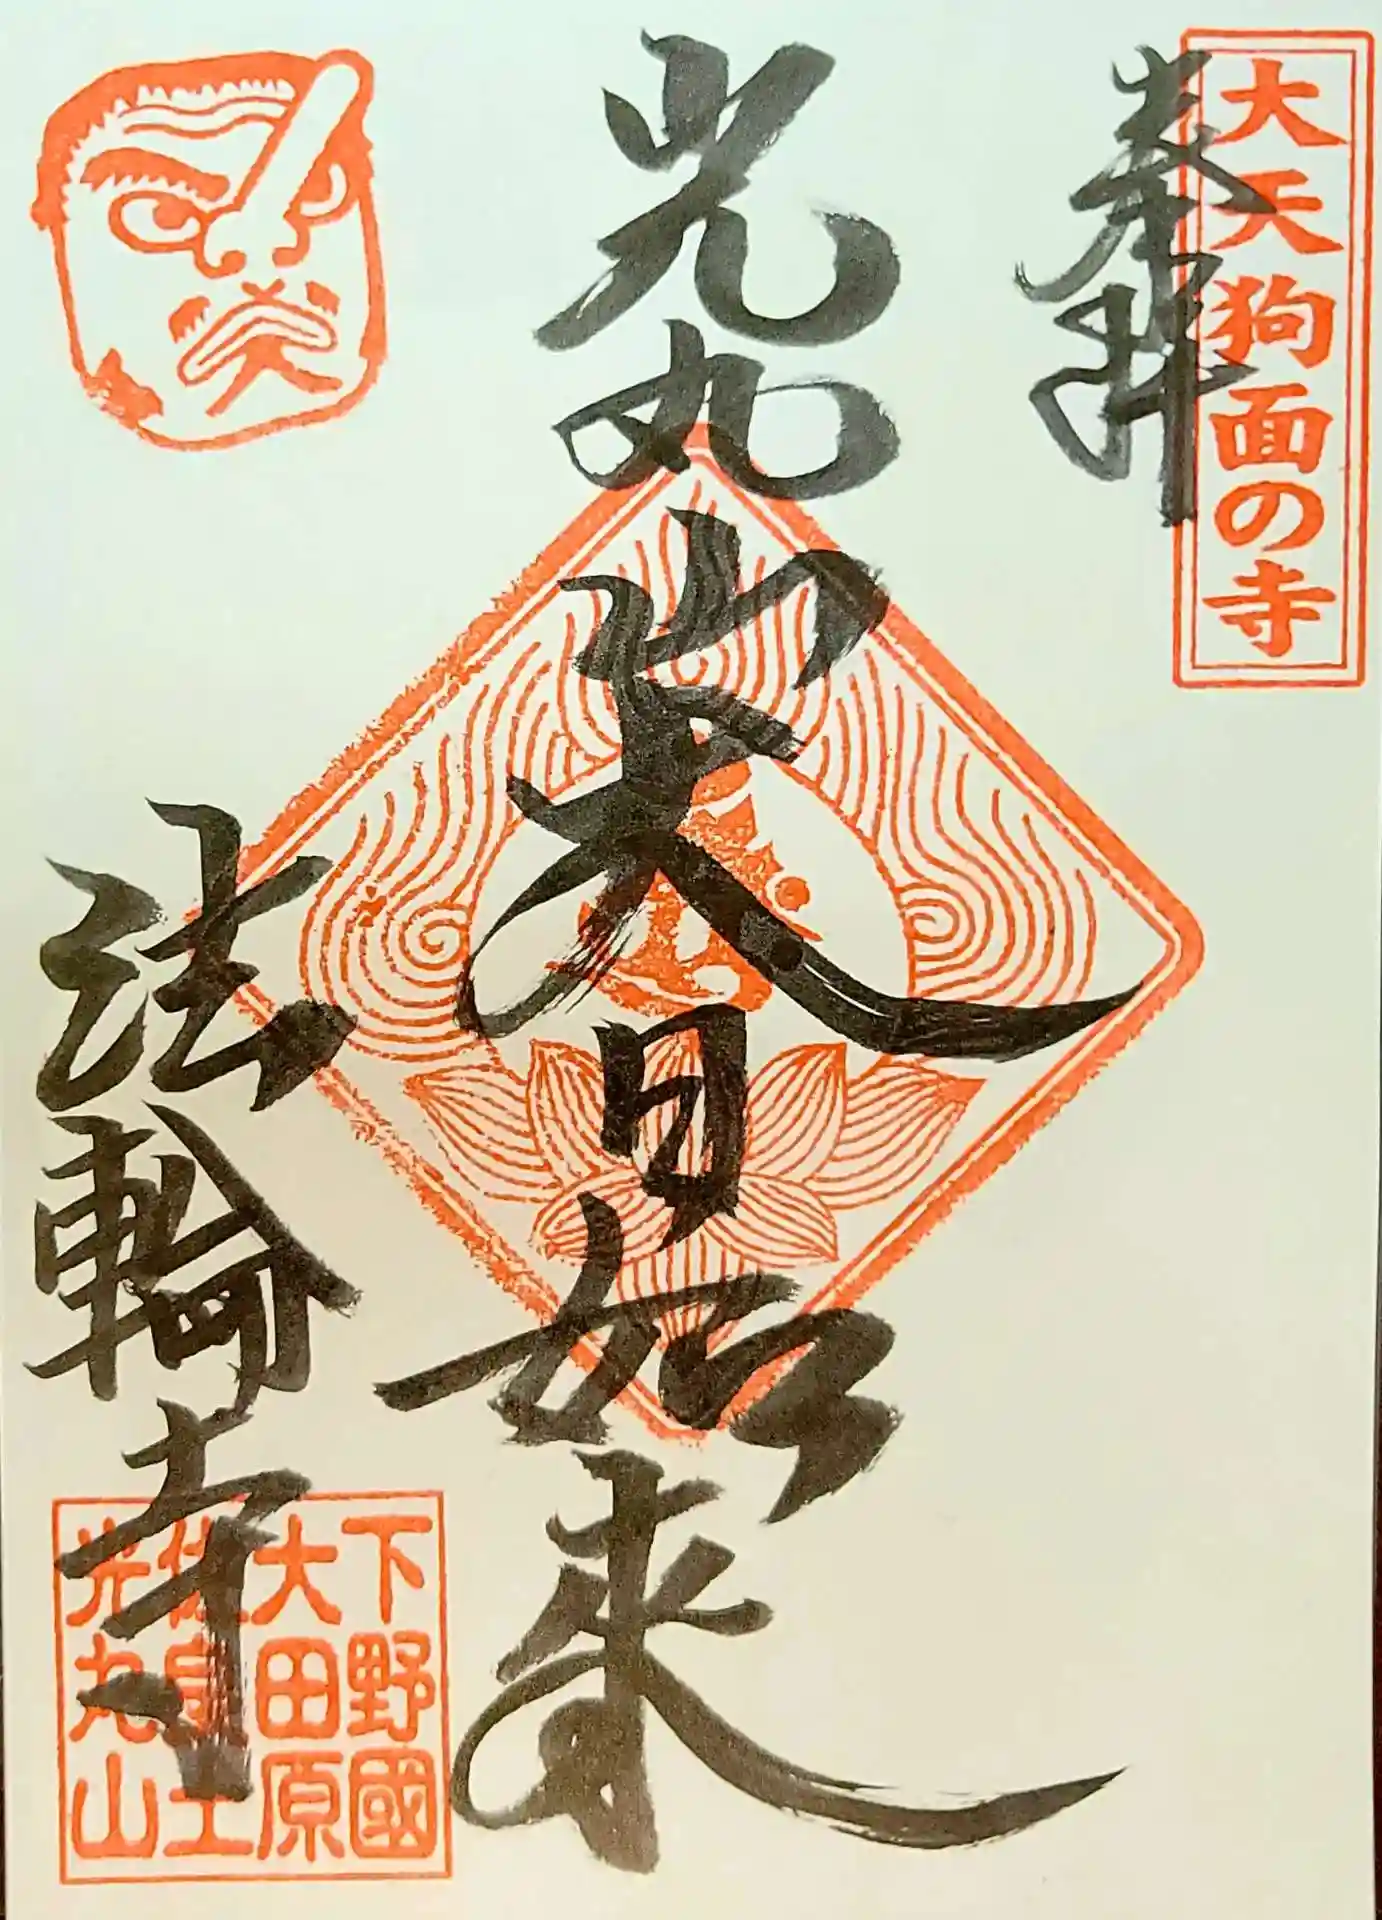 大天狗面の寺
奉拝
光丸山大日如来
法輪寺
下野國
大田原
佐良土
光丸山